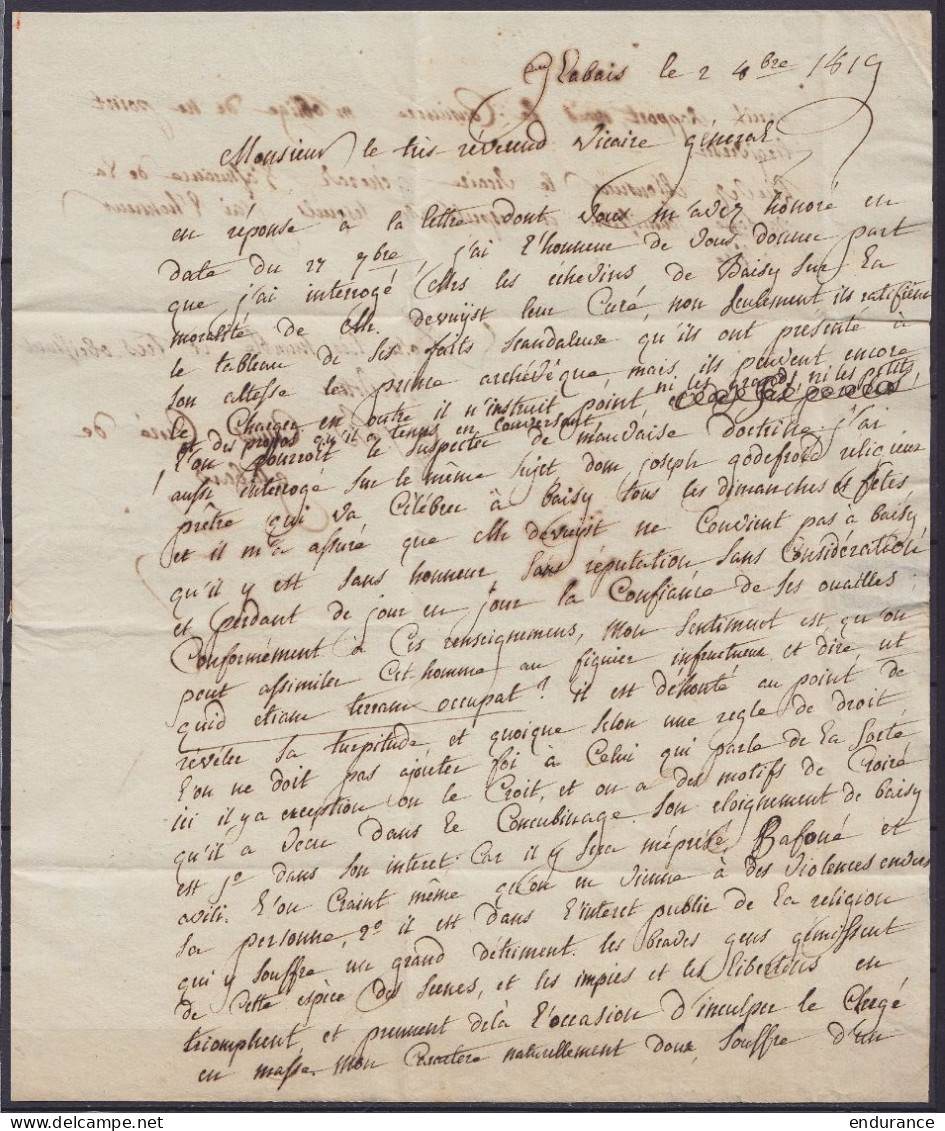 Glabais le 2 8bre 1819
Monsieur le très révérend Vicaire général
en réponse à la lettre dont vous m'avez honoré en
date du 27 7bre, j'ai l'honneur de vous donner part
que j'ai interrogé Mrs les échevins de Baisy sur la
moralité de Mr. devuyst leur Curé, non seulement ils ratifient
le tableau de ses faits scandaleux qu'ils ont presenté à
son altesse le prince archévêque, mais, ils peuvent encore
le Charger en outre il n'instruit point ni les grands, ni les petits
et des propos qu'il a tenus en conversant
l'on pourroit le suspecter de mauvaise doctrine. j'ai
aussi interrogé sur le même sujet dom joseph godefroid religieux
prêtre qui va Célébrer à baisy tous les dimanches et fêtes
et il m'a assuré que Mr devuyst ne Convient pas à baisy
qu'il y est sans honneur sans réputation sans Considération
et perdant de jour en jour la Confiance de ses ouailles
Conformément à Ces renseignemens, mon sentiment est qu'on
peut assimiler Cet homme au figuier infructueux et dire, ut
quid etiam terram occupat? il est déhonté au point de
révéler sa turpitude, et quoique selon une regle de droit
l'on ne doit pas ajouter foi à Celui qui parle de la sorte
ici il y a exception on le Croit, et on a des motifs de Croire
qu'il a vécu dans le Concubinage. son eloignement de baisy
est 1o dans son interet Car il y sera méprisé, Bafoué et
avili. l'on Craint même qu'on en vienne à des violences envers
sa personne, 2o il est dans l'interet public de la religion
qui y souffre un grand détriment. les braves gens gémissent
de Cette espèce des scenes, et les impies et les libertins en
triomphent, et prennent delà l'occasion d'inculper le Clergé
en masse. mon Caractere naturellement doux, souffre d'un
endurance